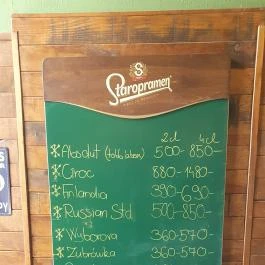 S
Staropramen
2cl 4cl
* Absolut (több ízben) 500-850-
* Ciroc 880-1480-
* Finlandia 390-690-
* Russian Std. 500-850-
* Wyborova 360-570-
* Zubrówka 360-570-